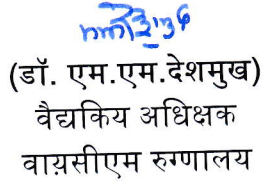 (डॉ. एम.एम.देशमुख)
वैद्यकिय अधिक्षक
वायसीएम रुग्णालय